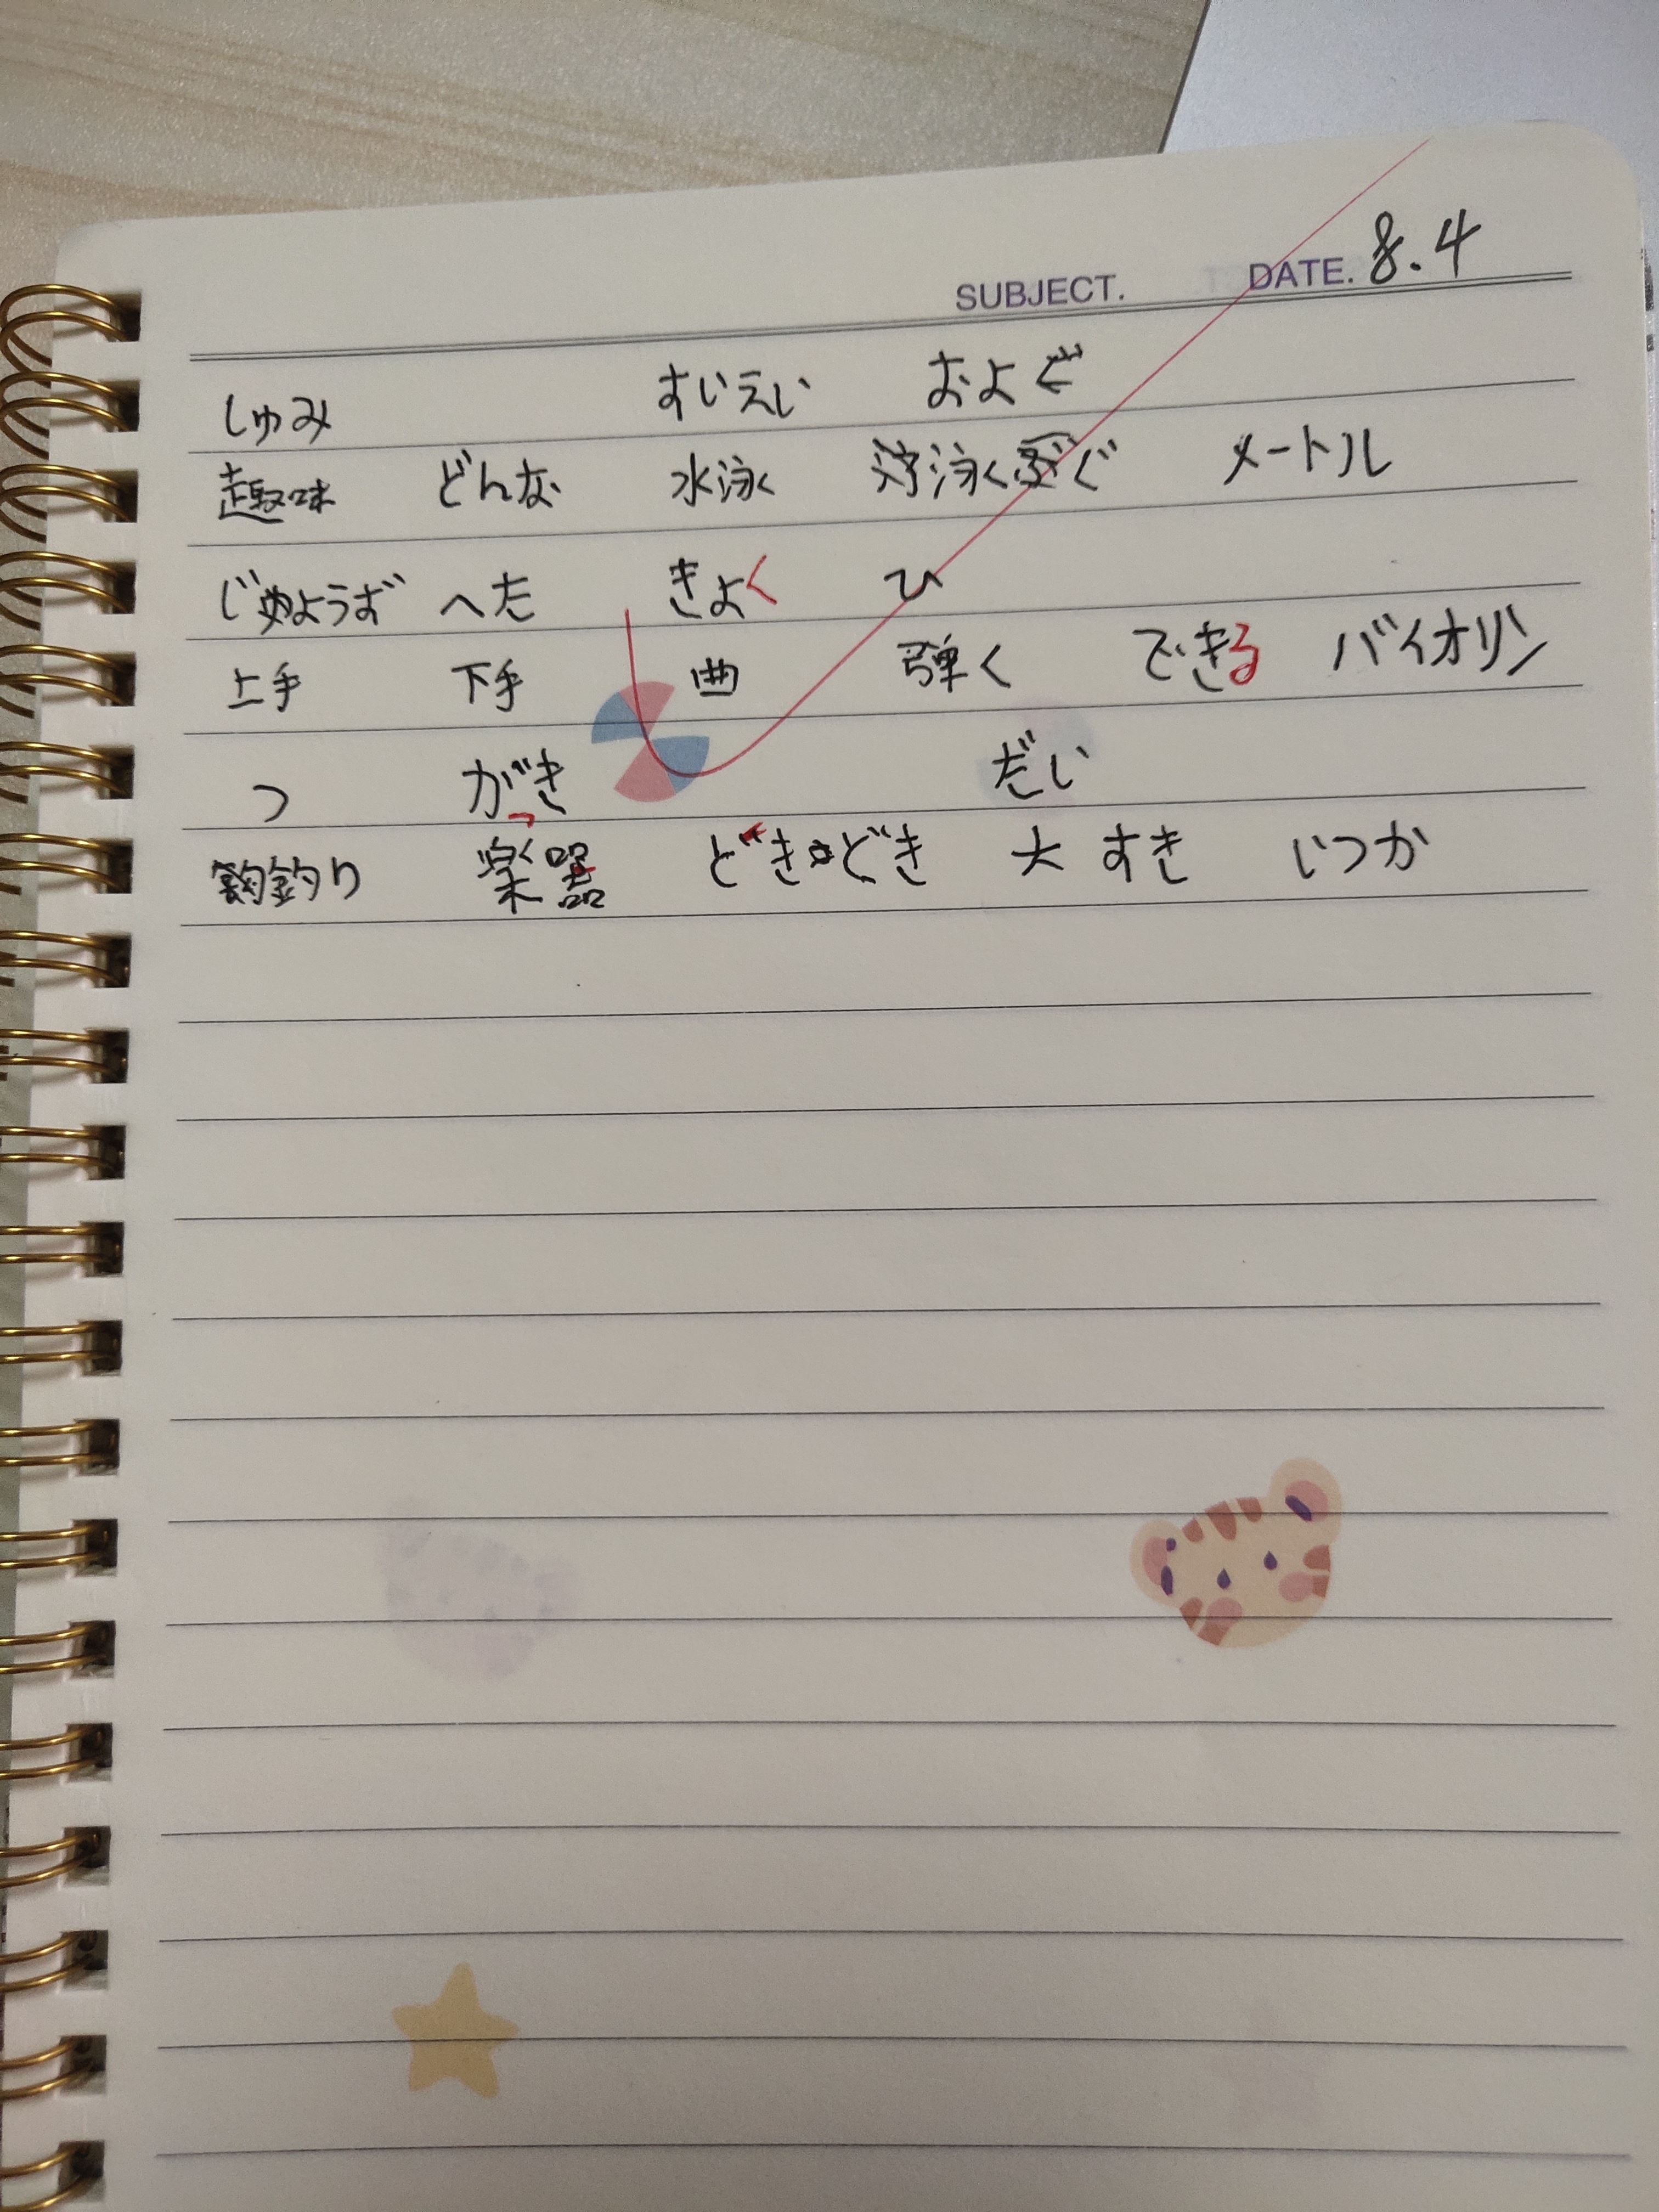 SUBJECT. DATE. 8.4
しゅみ すいえい およぐ
趣味 どんな 水泳 泳ぐ メートル
じょうず へた きょく ひ
上手 下手 曲 弾く できる バイオリン
つ がっき だい
釣り 楽器 どきどき 大すき いつか